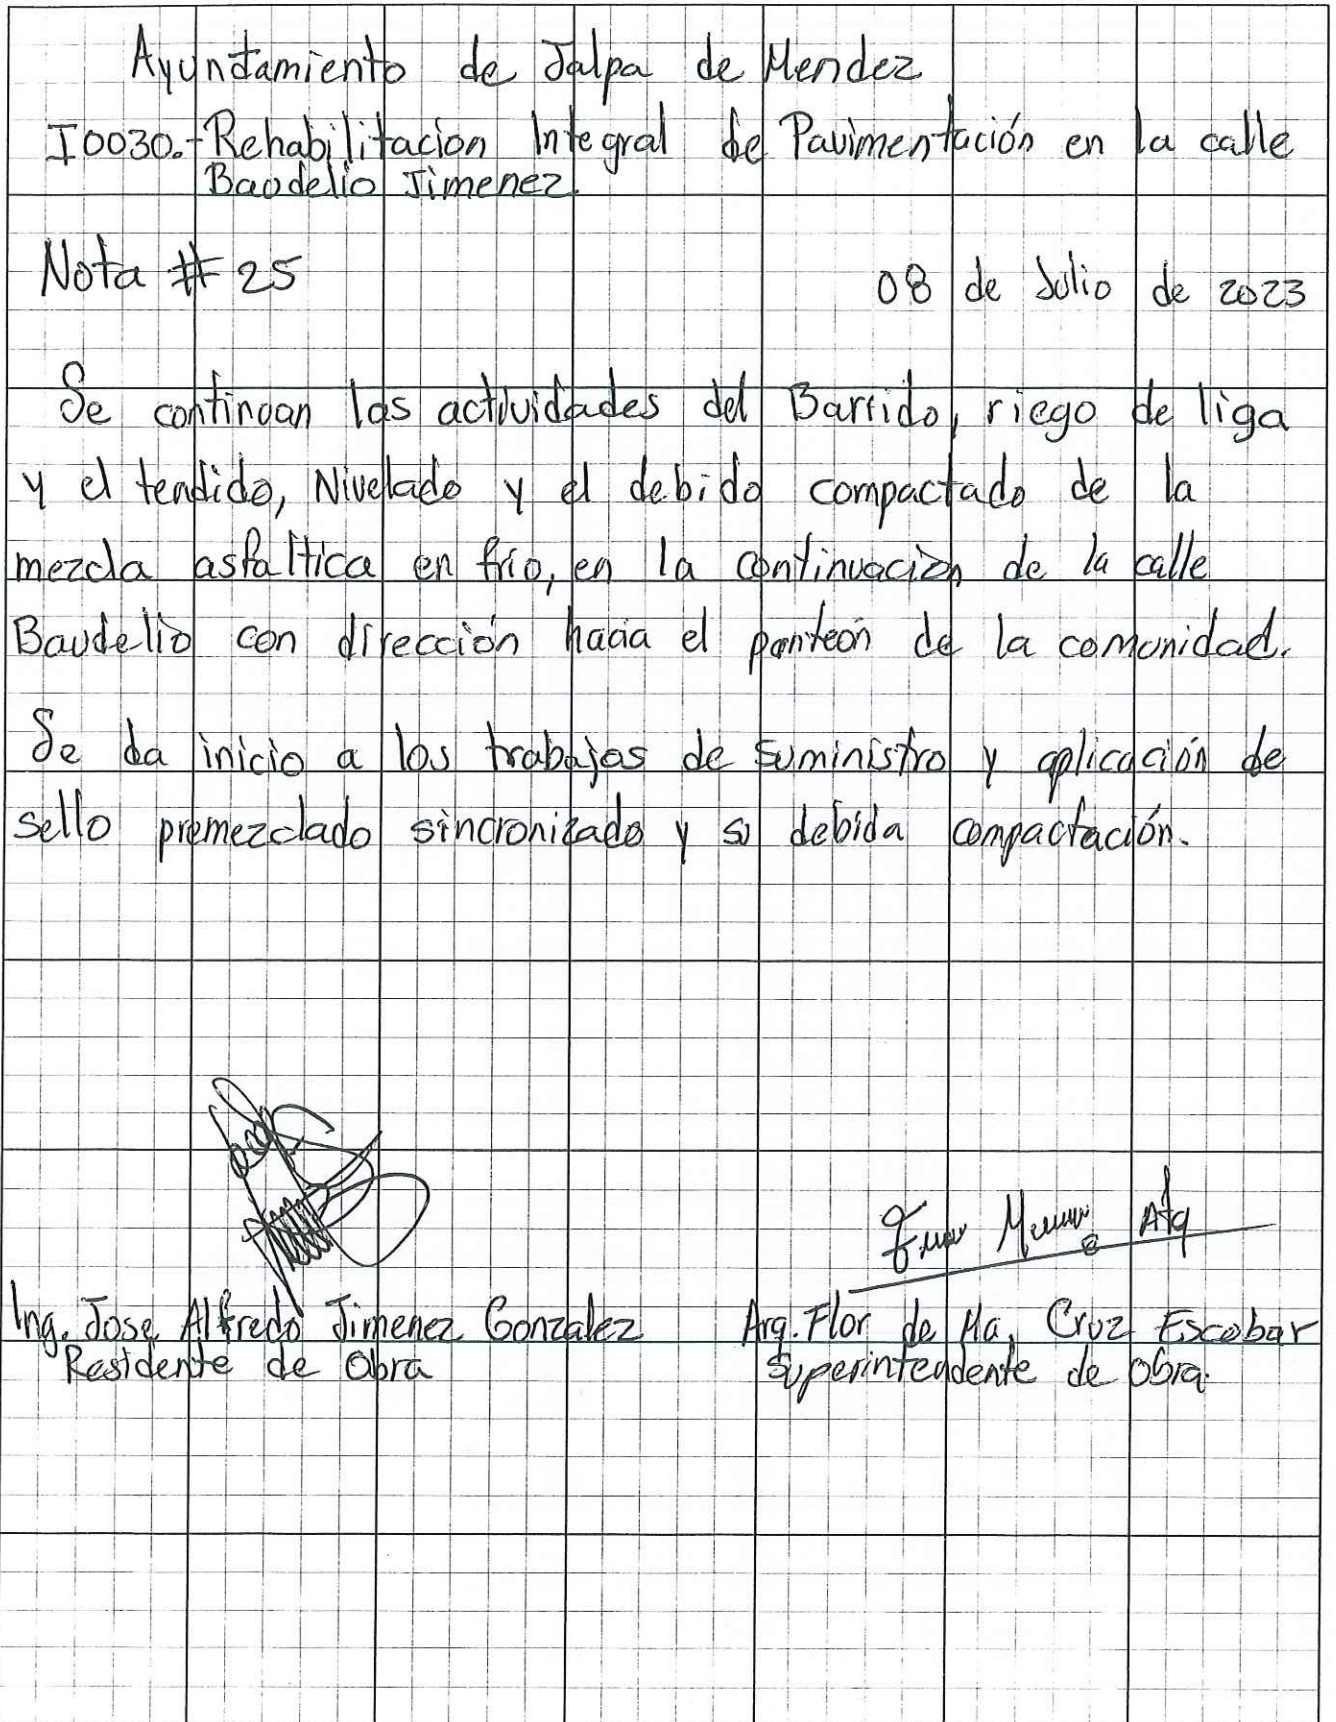 Ayuntamiento de Jalpa de Mendez
I0030.- Rehabilitacion Integral de Pavimentación en la calle
Baudelio Jimenez.
Nota # 25
08 de Julio de 2023
Se continuan las actividades del Barrido, riego de liga
y el tendido, Nivelado y el debido compactado de la
mezcla asfaltica en frio, en la continuación de la calle
Baudelio con dirección hacia el panteón de la comunidad.
Se da inicio a los trabajos de suministro y aplicación de
sello premezclado sincronizado y su debida compactación.
Ing. Jose Alfredo Jimenez Gonzalez
Residente de Obra
Arq. Flor de Ma. Cruz Escobar
Superintendente de Obra.